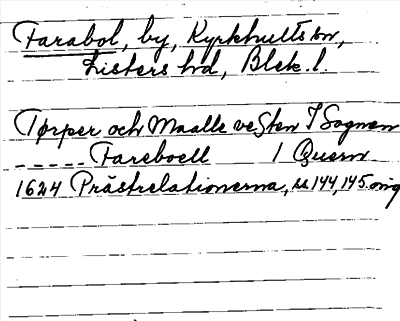 Farabol, by, Kyrkhults sn,
Listers hd, Blek. l.
Tørper och Maalle vesten I Sognen
----- Fareboell 1 Quern
1624 Prästrelationerna, s. 144, 145 orig